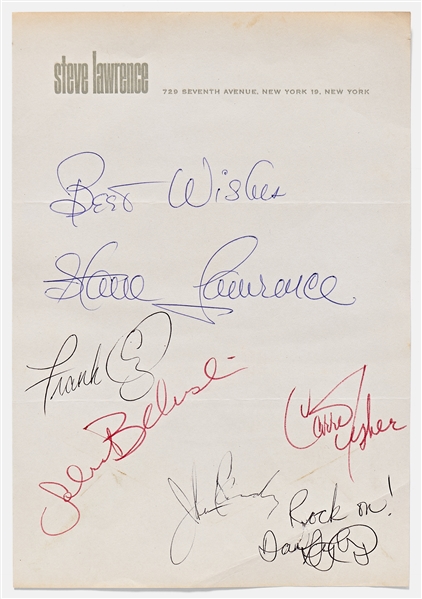 steve lawrence
729 SEVENTH AVENUE, NEW YORK 19, NEW YORK
Best Wishes
Steve Lawrence
Frank Oz
John Belushi
Carrie Fisher
John Candy
Rock on!
Dan